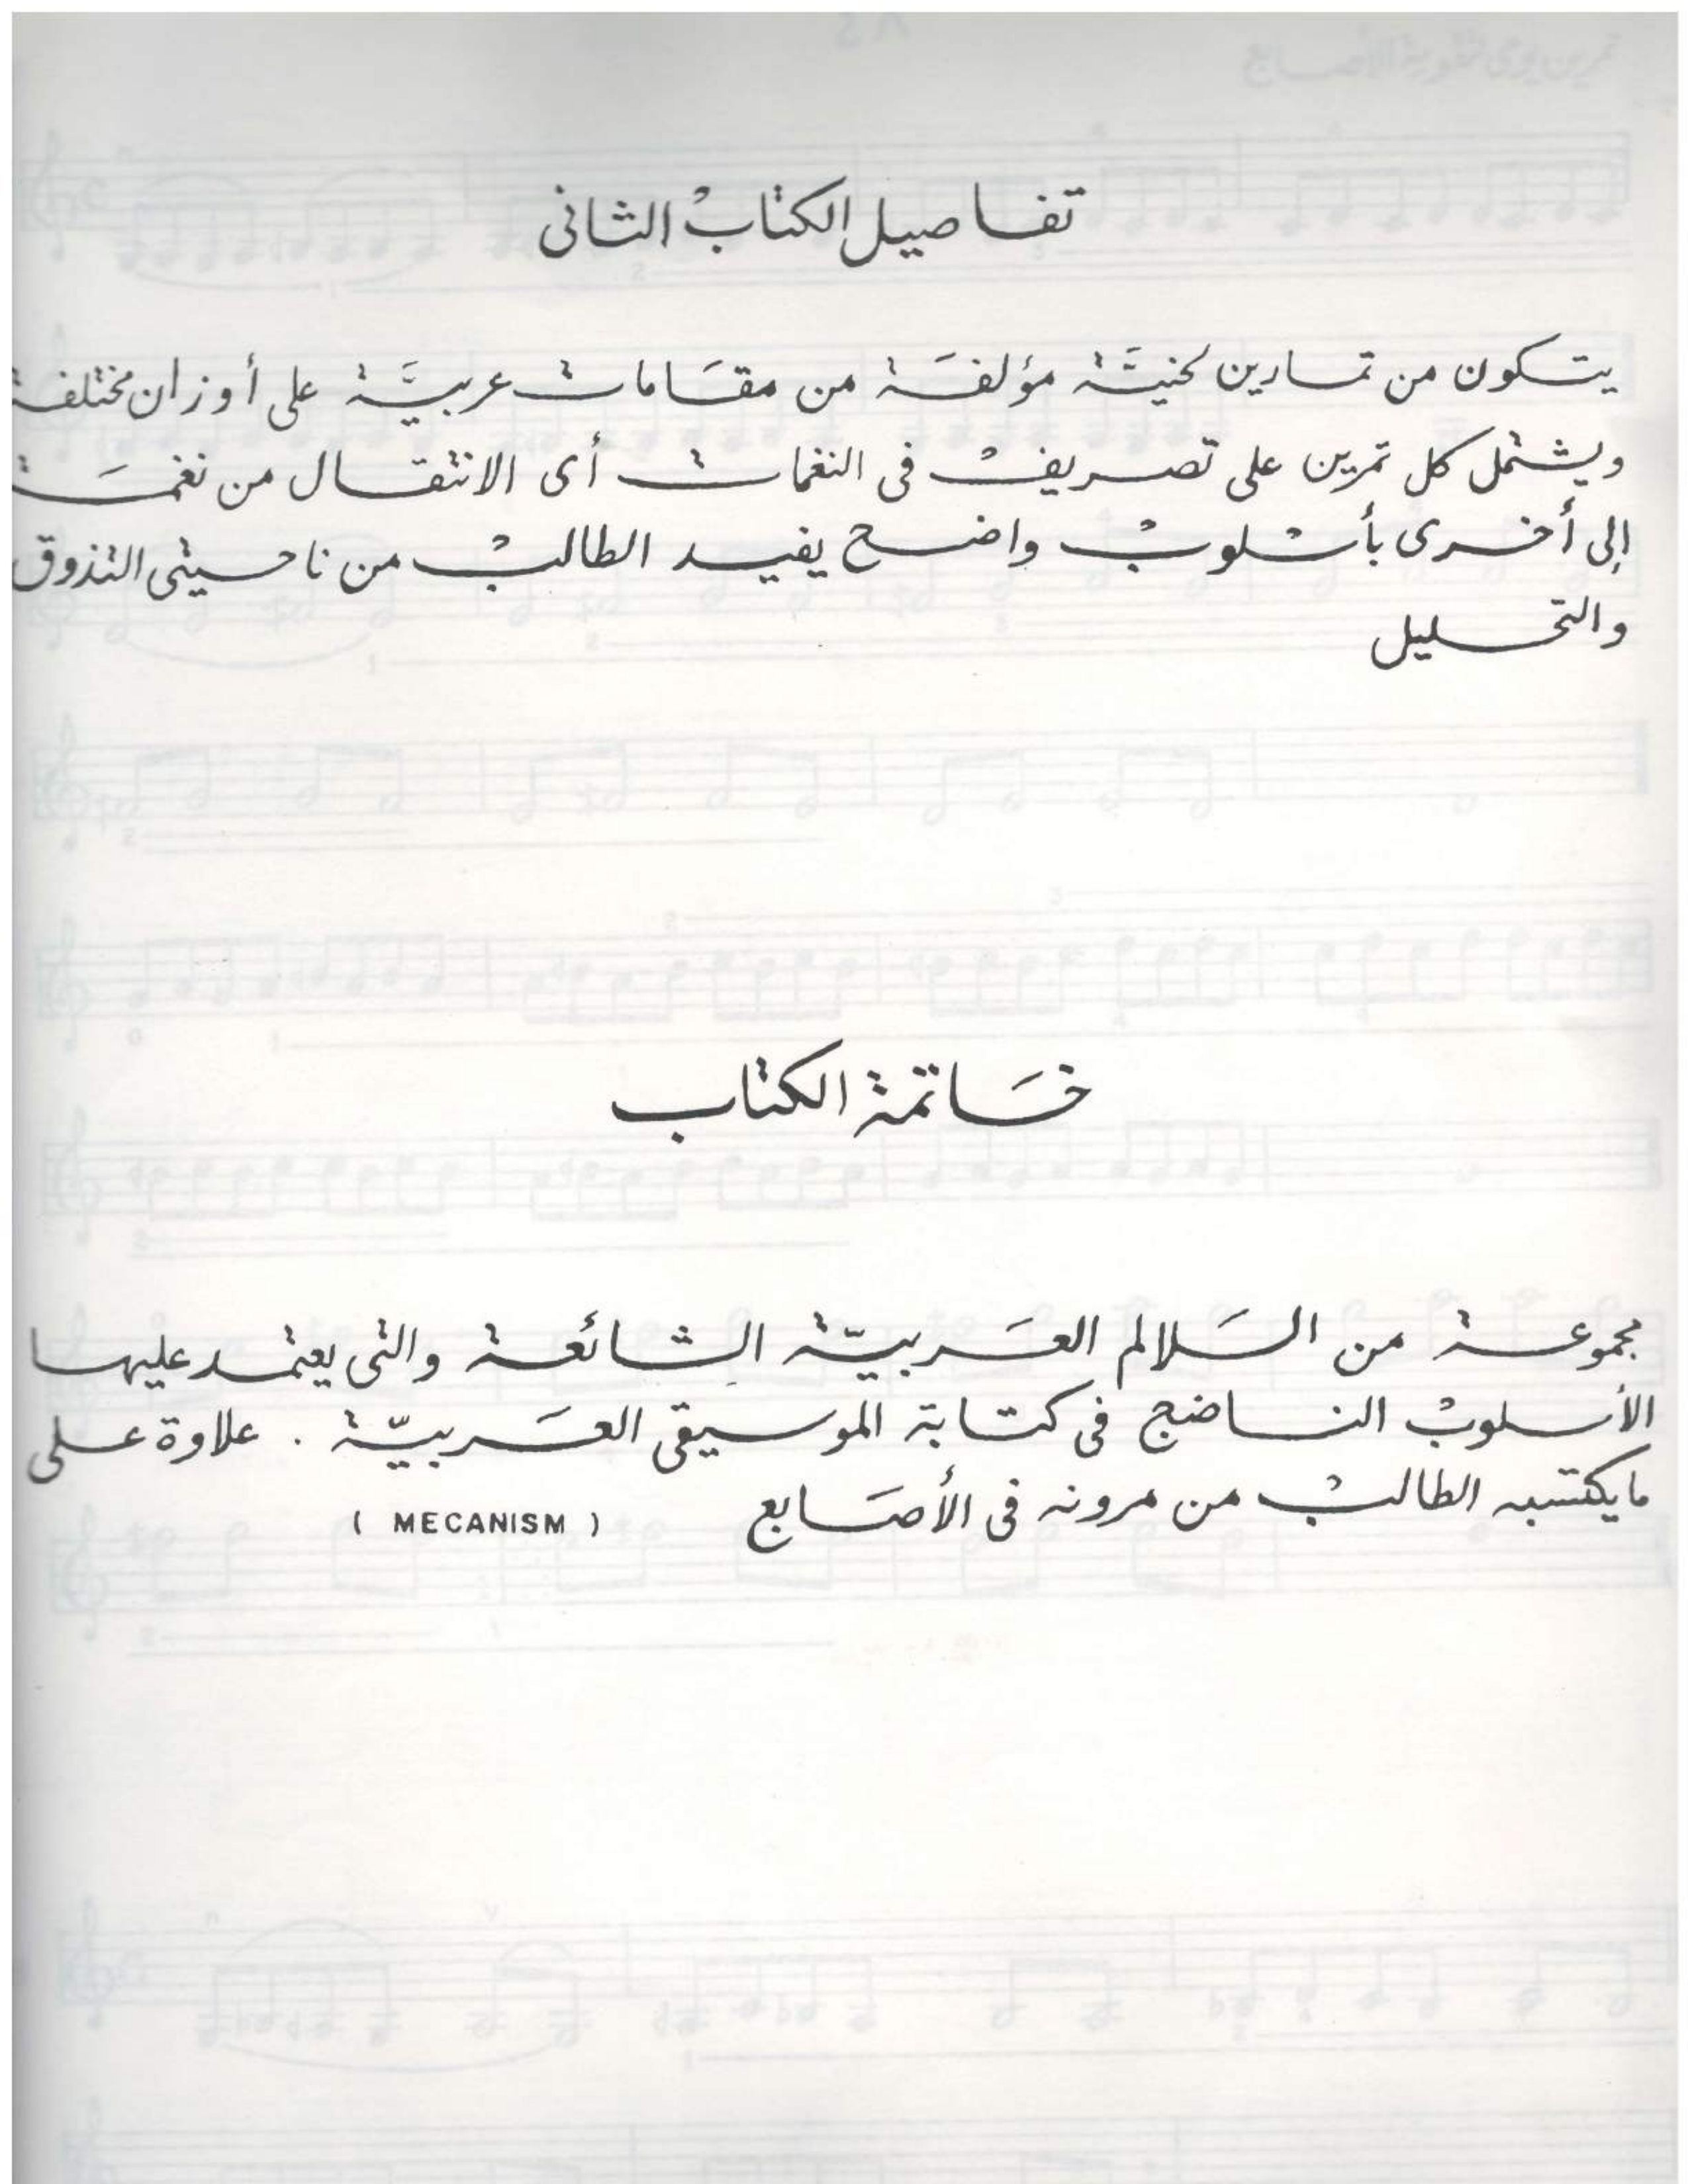 تفاصيل الكتاب الثانى
يتكون من تمارين لحنيَّة مؤلفَة من مقَامات عربيَّة على أوزان مختلفة
ويشتمل كل تمرين على تصريف فى النغمات أى الانتقال من نغمَة
إلى أخرى بأسلوب واضح يفيد الطالب من ناحيتى التذوق
والتحليل
خَاتمة الكتاب
مجموعة من السَلالم العَربيّة الشائعة والتى يعتمد عليها
الأسلوب الناضج فى كتابة الموسيقى العَربيّة . علاوة على
مايكتسبه الطالب من مرونه فى الأصَابع ( MECANISM )